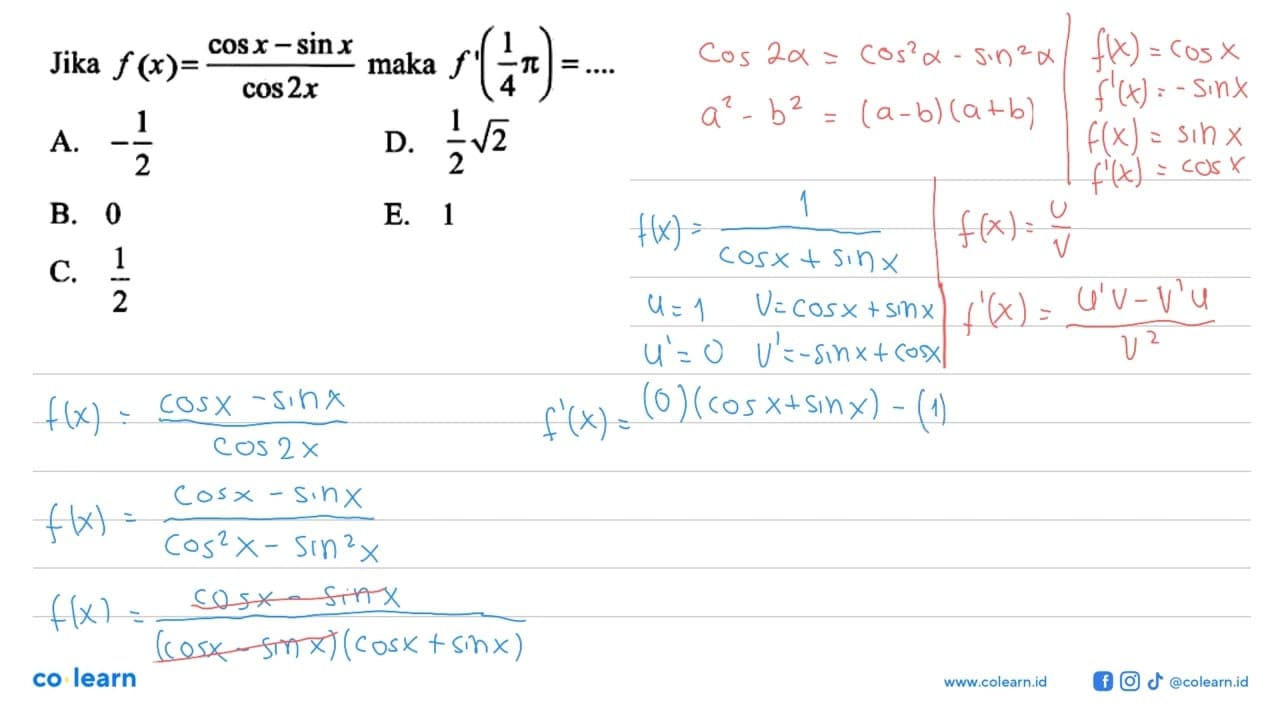 Jika f(x)= cos x – sin x / cos 2x maka f'(1/4 π) = ....
A. –1/2 D. 1/2 √2
B. 0 E. 1
C. 1/2
Cos 2α = cos²α - sin²α
a² - b² = (a-b)(a+b)
f(x) = cos x
f'(x) = - sin x
f(x) = sin x
f'(x) = cos x
f(x) = 1 / cosx + sinx
u = 1 V = cosx + sinx
u' = 0 V' = -sinx + cosx
f(x) = U / V
f'(x) = U'V - V'U / V²
f(x) = cosx - sinx / cos 2x
f'(x) = (0)(cosx + sinx) - (1)
f(x) = cosx - sinx / cos²x - sin²x
f(x) = cosx - sinx / (cosx - sinx)(cosx + sinx)
co learn
www.colearn.id
@colearn.id